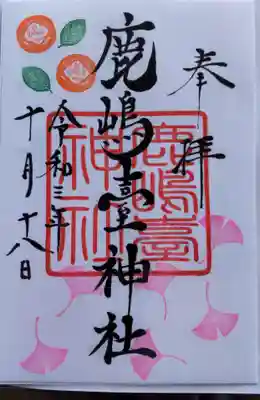 奉拝
鹿嶋臺神社
鹿嶋臺神社
令和三年
十月十八日